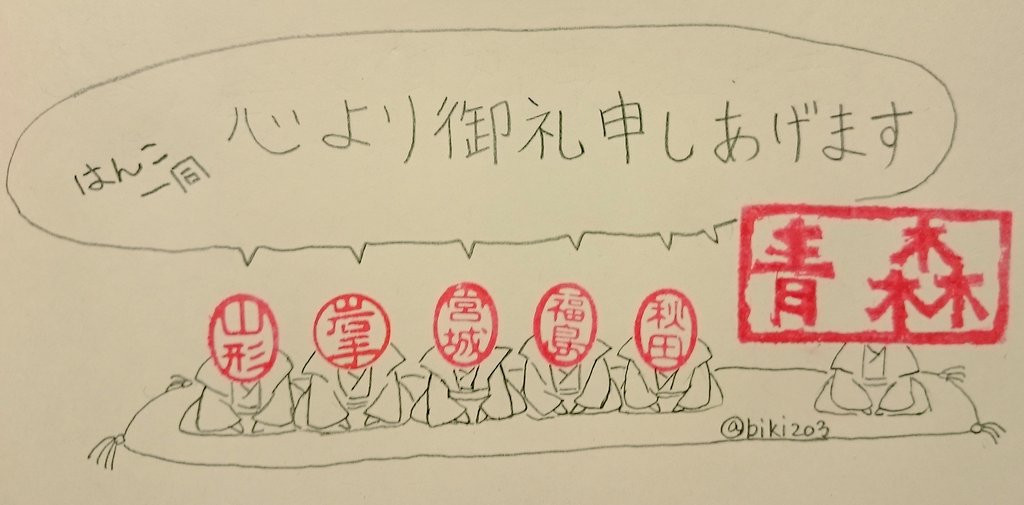 心より御礼申しあげます
はんこ
一同
山形
岩手
宮城
福島
秋田
青森
@biki203